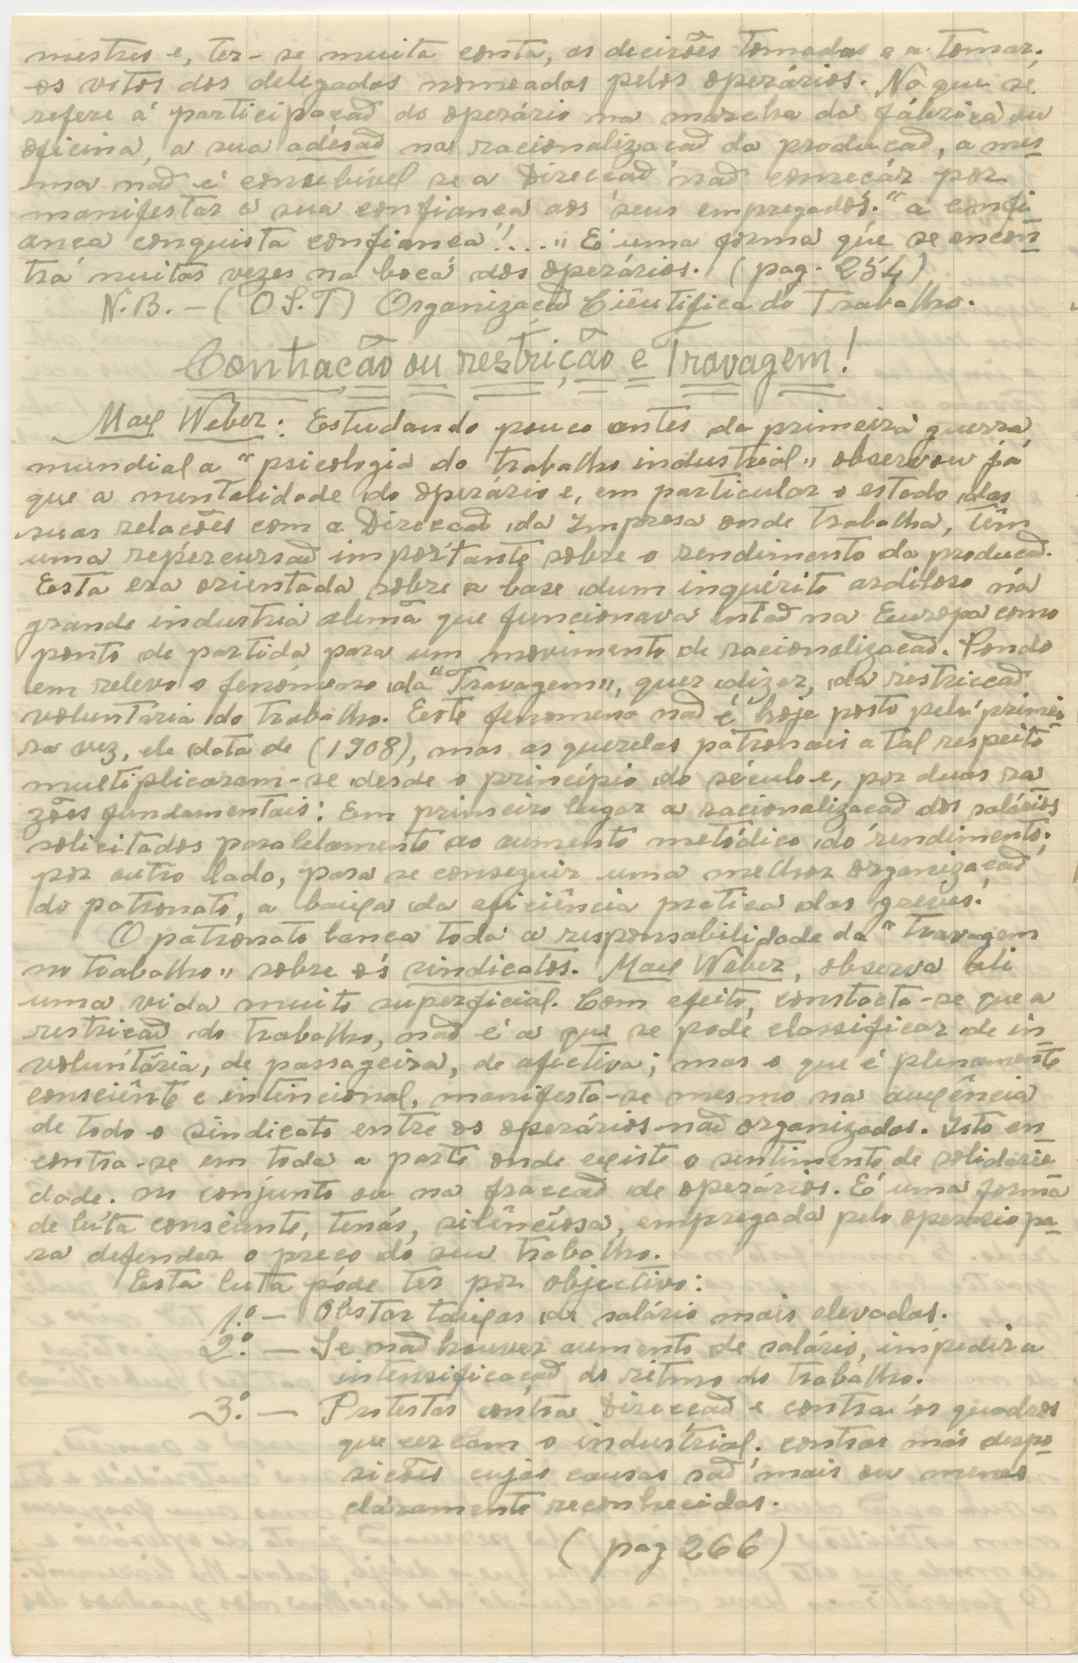 mestres e, ter-se muita conta, as decisões tomadas e a tomar.
os votos dos delegados nomeados pelos operários. No que se
refere á participacaõ do operário na marcha da fábrica ou
oficina, a sua adesaõ na racionalizacaõ da producaõ, a mes-
ma naõ é consebível se a Direccaõ naõ comecár por
manifestar a sua confianca aos seus empregados. "a confi
anca conquista confianca"!...., É uma forma que se encon-
tra muitas vezes na boca dos operários. (pag. 254)
N.B. - ( O.S.T) Organizaçaõ Ciêntifica do Trabalho.
Contracão ou restrição e Travagem!
Max Weber: Estudando pouco antes da primeira guerra
mundial a "psicologia do trabalho industrial" observou já
que a mentalidade do operário e, em particular o estado das
suas relacões com a Direccaõ da Impresa onde trabalha, têm
uma repercursaõ importante sobre o rendimento da producaõ.
Esta era orientada sobre a base dum inquérito ardiloso na
grande industria alemã que funcionava entaõ na Europa como
ponto de partida para um movimento de racionalizacaõ. Pondo
em relevo o fenómeno da "Travagem", quer dizer, da restriccaõ
voluntária do trabalho. Este fenomeno naõ é hoje posto pela primei
ra vez, ele data de (1908), mas as querelas patronais a tal respeito
multiplicaram-se desde o princípio do século e, por duas ra
zões fundamentais: Em primeiro lugar a racionalizacaõ dos salários
solicitados paralelamente ao aumento metódico do rendimento;
por outro lado, para se conseguir uma melhor organizaçaõ
do patronato, a baixa da eficiência pratica das greves.
O patronato lanca toda a responsabilidade da "travagem
no trabalho" sobre os sindicatos. Max Weber, observa ali
uma vida muito superficial. Com efeito, constacta-se que a
restricaõ do trabalho, naõ é a que se pode classificar de in-
voluntária, de passageira, de afectiva; mas o que é plenamente
consciênte e intencional, manifesta-se mesmo na auxência
de todo o sindicato entre os operários naõ organizados. Isto en
contra-se em toda a parte onde existe o sentimento de solidarie
dade. no conjunto ou na fraccaõ de operários. É uma forma
de luta consciante, tenás, silênciosa, empregada pelo operario pa-
ra defender o preco do seu trabalho.
Esta luta póde ter por objectivo:
1.º - Obstar taixas de salário mais elevadas.
2.º - Se naõ houver aumento de salário, impedir a
intensificaçaõ do ritmo do trabalho.
3.º - Protestar contra Direcçaõ e contra os quadros
que cercam o industrial. contra más dispo-
sicões cujas causas saõ mais ou menos
claramente reconhecidas.
( pag 266)